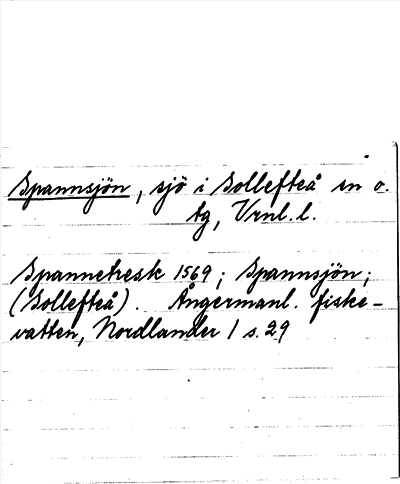 Spannsjön, sjö i Sollefteå sn o.
tg, Vrnl. l.
Spannetresk 1569; Spannsjön;
(Sollefteå). Ångermanl. fiske-
vatten, Nordlander 1 s. 29